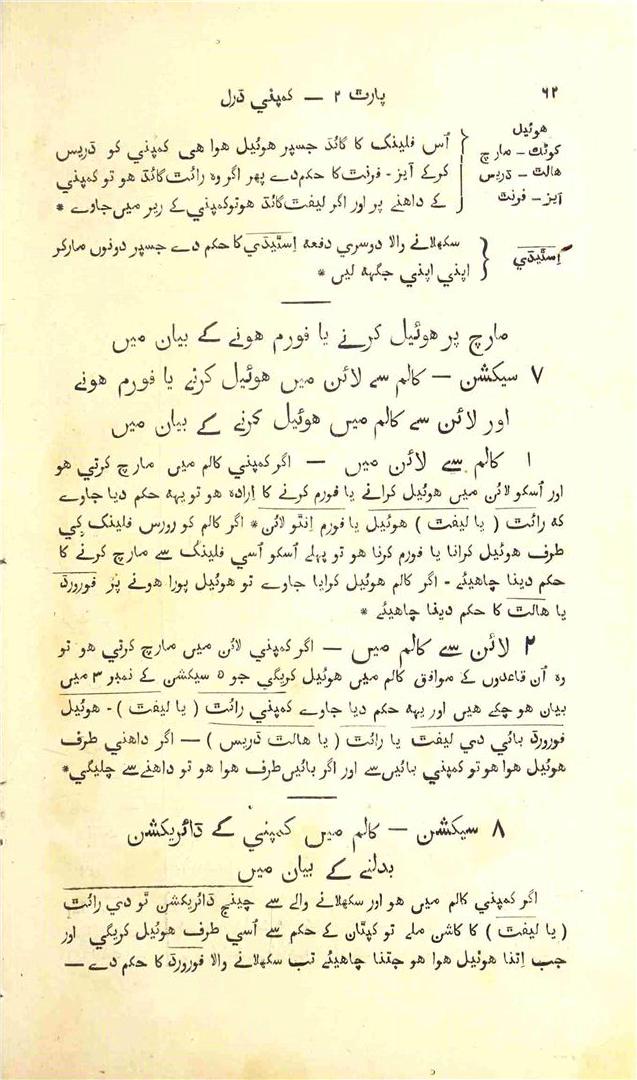 ۶۲
پارٹ ۲ — کمپني ڈرل
ھوئیل
کوئک - مارچ
ھالٹ - ڈریس
آیز - فرنٹ
اُس فلینک کا گائڈ جسپر ھوئیل ھوا ھی کمپني کو ڈریس
کرکے آیز - فرنٹ کا حکم دے پھر اگر وہ رائٹ گائڈ ھو تو کمپني
کے داھنے پر اور اگر لیفٹ گائڈ ھوتو کمپني کے ریر میں جاوے *
اِسٹیڈي
سکھلانے والا دوسري دفعہ اِسٹیڈي کا حکم دے جسپر دونوں مارکر
اپني اپني جگہہ لیں *
مارچ پر ھوئیل کرنے یا فورم ھونے کے بیان میں
۷ سیکشن — کالم سے لائن میں ھوئیل کرنے یا فورم ھونے
اور لائن سے کالم میں ھوئیل کرنے کے بیان میں
۱ کالم سے لائن میں — اگر کمپني کالم میں مارچ کرتي ھو
اور اُسکو لائن میں ھوئیل کرانے یا فورم کرنے کا اِرادہ ھو تو یہہ حکم دیا جاوے
کہ رائٹ ( یا لیفٹ ) ھوئیل یا فورم اِنٹو لائن * اگر کالم کو رورس فلینک کي
طرف ھوئیل کرانا یا فورم کرنا ھو تو پہلے اُسکو اُسي فلینک سے مارچ کرنے کا
حکم دینا چاھیئے - اگر کالم ھوئیل کرایا جاوے تو ھوئیل پورا ھونے پر فورورڈ
یا ھالٹ کا حکم دینا چاھیئے *
۲ لائن سے کالم میں — اگر کمپني لائن میں مارچ کرتي ھو تو
وہ اُن قاعدوں کے موافق کالم میں ھوئیل کریگي جو ۵ سیکشن کے نمبر ۳ میں
بیان ھو چکے ھیں اور یہہ حکم دیا جاوے کمپني رائٹ ( یا لیفٹ ) - ھوئیل
فورورڈ بائي دي لیفٹ یا رائٹ ( یا ھالٹ ڈریس ) — اگر داھني طرف
ھوئیل ھوا ھو تو کمپني بائیں سے اور اگر بائیں طرف ھوا ھو تو داھنے سے چلیگي *
۸ سیکشن — کالم میں کمپني کے ڈائریکشن
بدلنے کے بیان میں
اگر کمپني کالم میں ھو اور سکھلانے والے سے چینج ڈائریکشن ٹو دي رائٹ
( یا لیفٹ ) کا کاشن ملے تو کپتان کے حکم سے اُسي طرف ھوئیل کریگي اور
جب اِتنا ھوئیل ھوا ھو جتنا چاھیئے تب سکھلانے والا فورورڈ کا حکم دے —